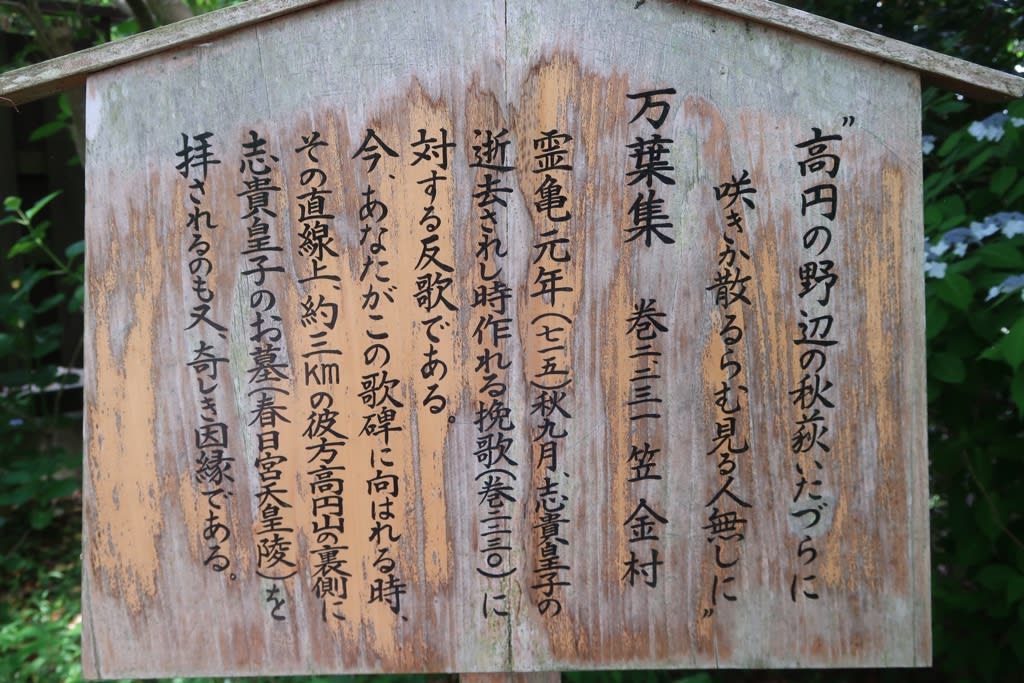 "高円の野辺の秋萩いたづらに
咲きか散るらむ見る人無しに"
万葉集 巻二-二三一 笠 金村
霊亀元年(七一五)秋九月、志貴皇子の
逝去されし時作れる挽歌(巻二-二三〇)に
対する反歌である。
今、あなたがこの歌碑に向はれる時、
その直線上、約三kmの彼方高円山の裏側に
志貴皇子のお墓(春日宮天皇陵)を
拝されるのも又、奇しき因縁である。